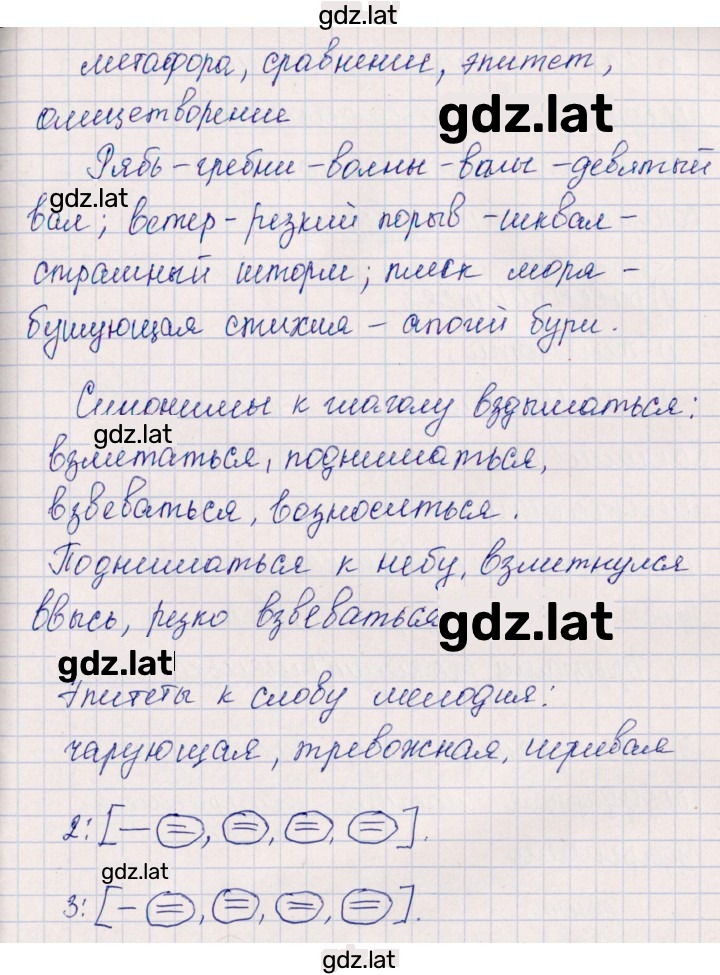 gdz.lat
метафора, сравнение, эпитет,
олицетворение
gdz.lat
Рябь - гребни - волны - валы - девятый
gdz.lat
вал; ветер - резкий порыв - шквал -
страшный шторм; плеск моря -
бушующая стихия - апогей бури.
Синонимы к глаголу вздыматься:
gdz.lat
взметаться, подниматься,
взвеваться, возноситься.
Подниматься к небу, взметнулся
ввысь, резко взвеваться
gdz.lat
gdz.lat
Эпитеты к слову мелодия:
чарующая, тревожная, игривая
2: [— =, =, =, =].
gdz.lat
3: [- =, =, =, =].
gdz.lat